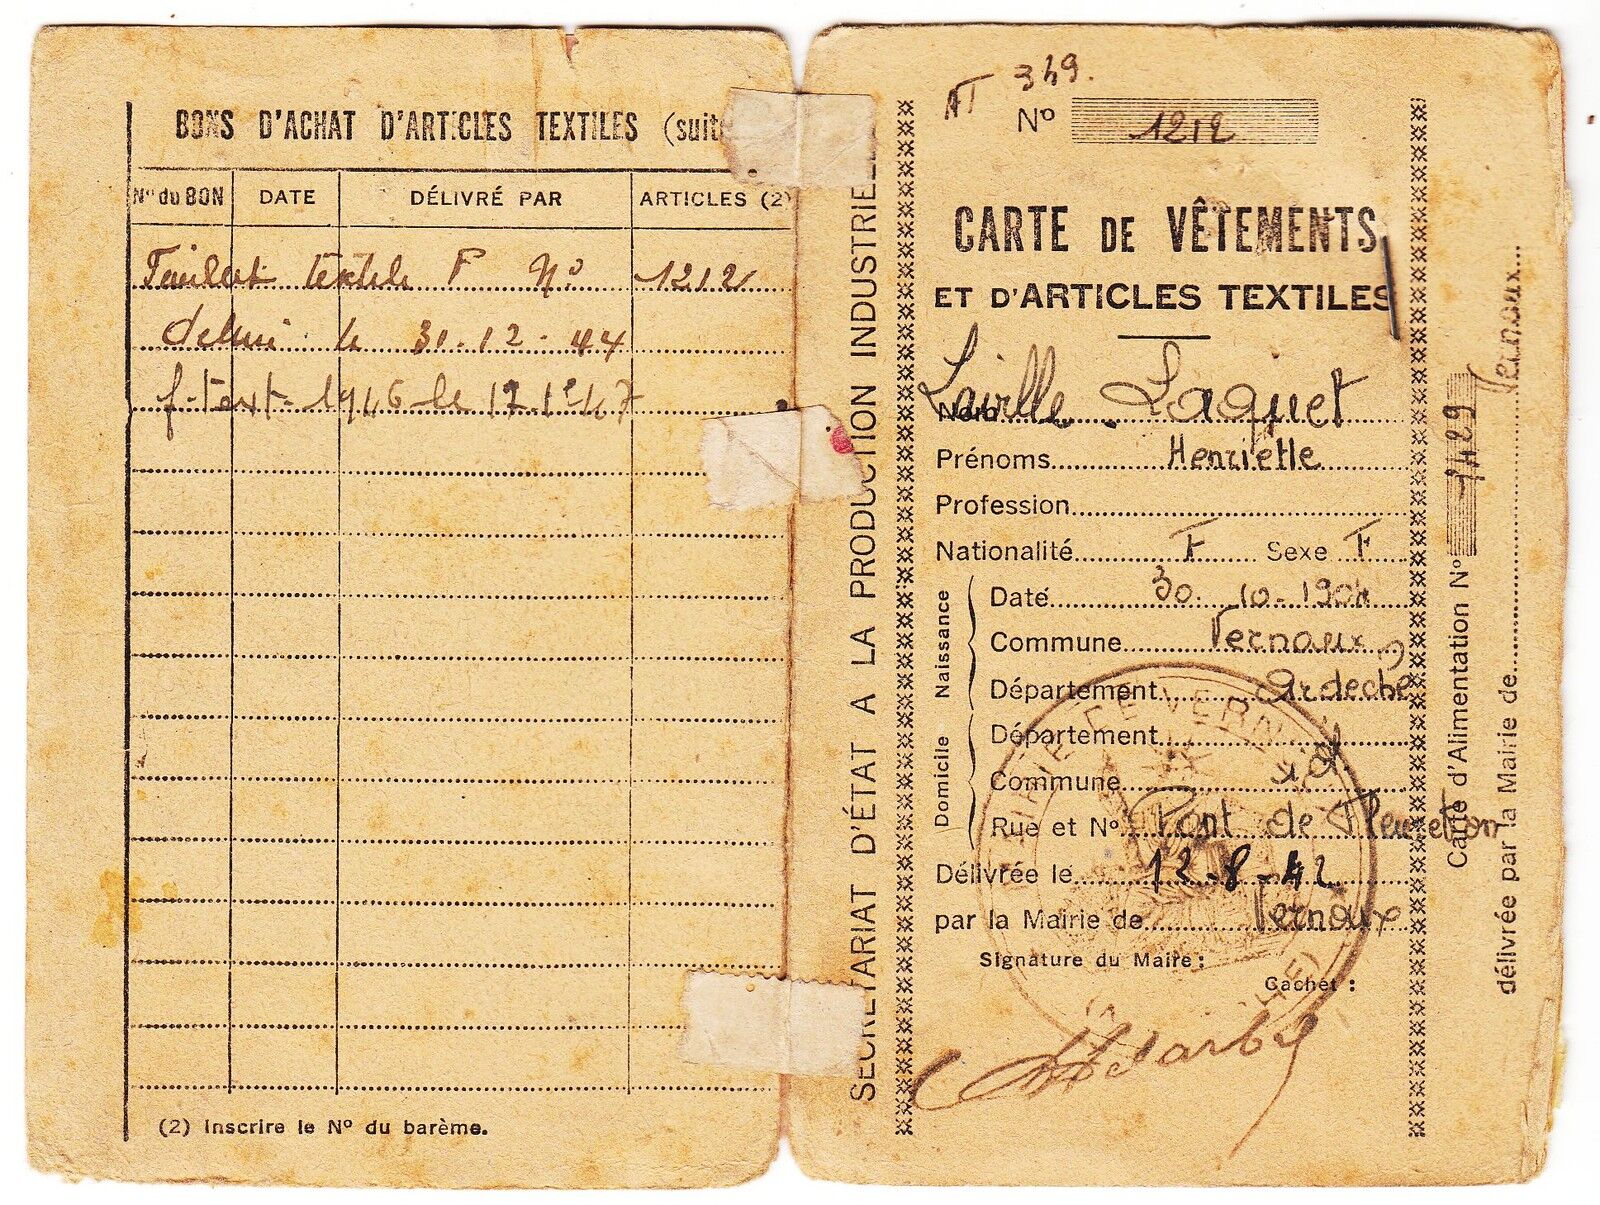 BONS D'ACHAT D'ARTICLES TEXTILES (suite
Nº du BON DATE DÉLIVRÉ PAR ARTICLES (2)
textile F Nº 1212
le 31.12.44
f. text. 1946 le
(2) Inscrire le Nº du barème.
SECRÉTARIAT D'ÉTAT A LA PRODUCTION INDUSTRIELLE
AT 349.
Nº 1212
CARTE DE VÊTEMENTS
ET D'ARTICLES TEXTILES
Nom Laville. Laquet
Prénoms Henriette
Profession
Nationalité F Sexe F
Naissance
Date 30.10-1904
Commune Vernoux
Département Ardèche
Domicile
Département
Commune id
Rue et Nº Pont de Fleuretton
Délivrée le 12-8-42
par la Mairie de Vernoux
Signature du Maire:
Cachet:
MAIRIE DE VERNOUX
Carte d'Alimentation Nº 1429
délivrée par la Mairie de Vernoux